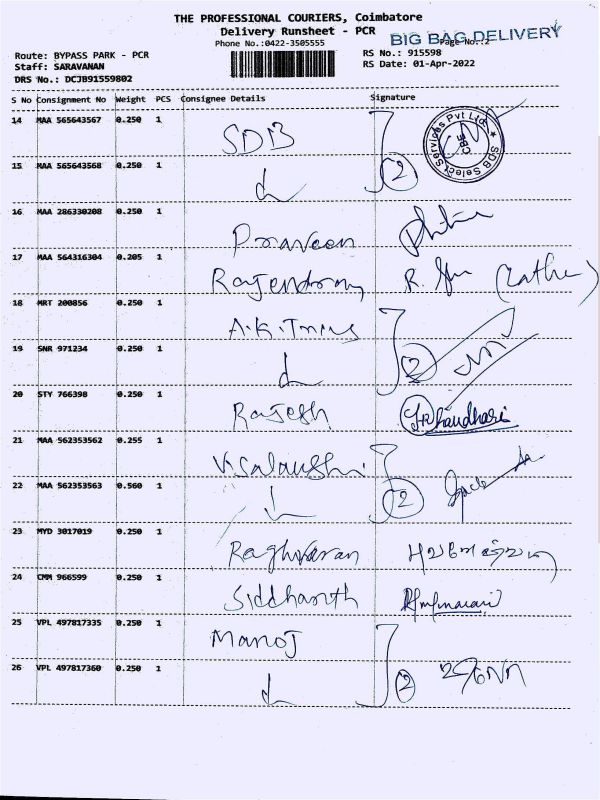 THE PROFESSIONAL COURIERS, Coimbatore
Delivery Runsheet - PCR
BIG BAG DELIVERY
Phone No.:0422-3505555
Page No.:2
Route: BYPASS PARK - PCR
RS No.: 915598
Staff: SARAVANAN
RS Date: 01-Apr-2022
DRS No.: DCJB91559802
S No Consignment No Weight PCS Consignee Details Signature
14 MAA 565643567 0.250 1 SDB
SDB Select Services Pvt Ltd
CBE
15 MAA 565643568 0.250 1 2
16 MAA 286330208 0.250 1 Praveen
17 MAA 564316304 0.205 1 R.
18 MRT 200856 0.250 1
19 SNR 971234 0.250 1 2
20 STY 766398 0.250 1 Rajesh
21 MAA 562353562 0.255 1
22 MAA 562353563 0.560 1 2
23 MYD 3017019 0.250 1 Raghavaran
24 CMM 966599 0.250 1 Siddhanth
25 VPL 497817335 0.250 1 Manoj
26 VPL 497817360 0.250 1 2